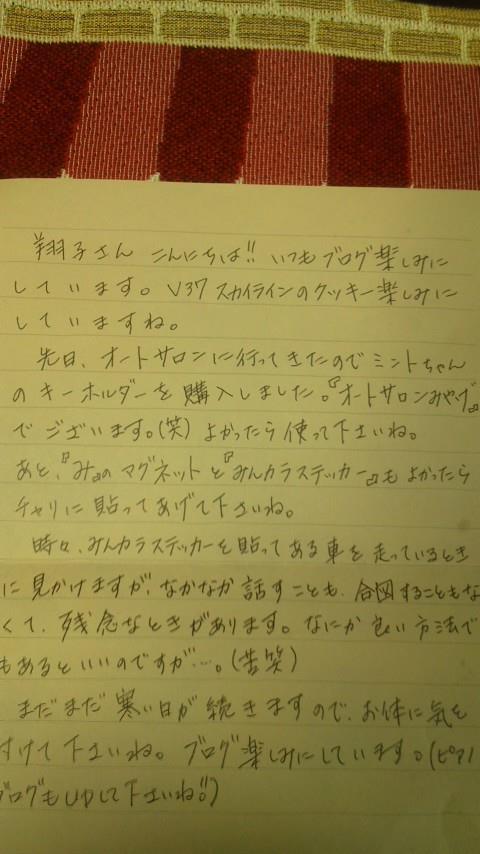 翔子さん こんにちは!! いつもブログ楽しみに
しています。V37 スカイラインのクッキー楽しみに
していますね。
先日、オートサロンに行ってきたのでミントちゃん
のキーホルダーを購入しました。『オートサロンみやげ』
でございます。(笑) よかったら使って下さいね。
あと、『み』のマグネットと『みんカラステッカー』もよかったら
チャリに貼ってあげて下さいね。
時々、みんカラステッカーを貼ってある車を走っているとき
に見かけますが、なかなか話すことも、合図することもな
くて、残念なときがあります。なにか良い方法で
もあるといいのですが…。(苦笑)
まだまだ寒い日が続きますので、お体に気を
つけて下さいね。ブログ楽しみにしています。(ピアノ
ブログもUPして下さいね!!)